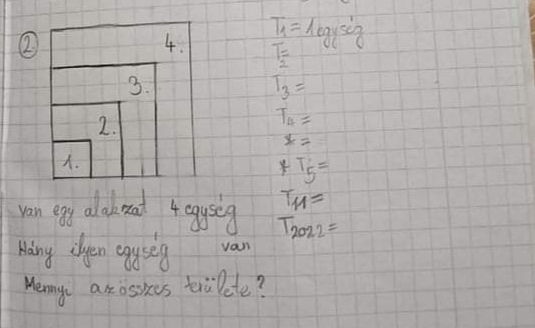 2.
4.
3.
2.
1.
T1 = 1 egység
T2 =
T3 =
T4 =
* =
* T5 =
T11 =
T2022 =
van egy alakzat 4 egység
Hány ilyen egység van
Mennyi azösszes területe?